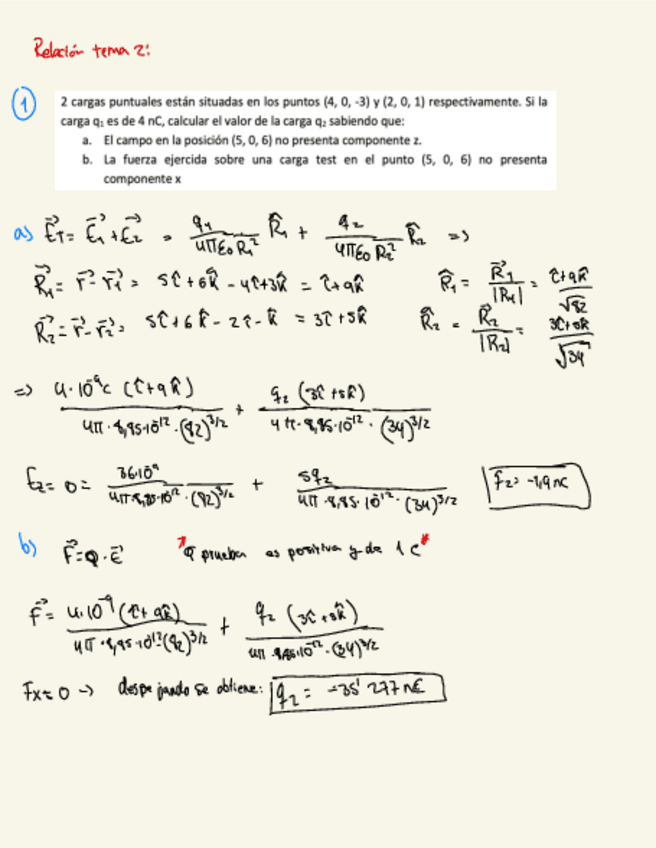 Relación tema 2:
① 2 cargas puntuales están situadas en los puntos (4, 0, -3) y (2, 0, 1) respectivamente. Si la
carga q₁ es de 4 nC, calcular el valor de la carga q₂ sabiendo que:
a. El campo en la posición (5, 0, 6) no presenta componente z.
b. La fuerza ejercida sobre una carga test en el punto (5, 0, 6) no presenta
componente x
a) E⃗T = E⃗₁ + E⃗₂ = q₁/(4πε₀ R₁²) R̂₁ + q₂/(4πε₀ R₂²) R̂₂ =>
R⃗₁ = r⃗ - r⃗₁ = 5î + 6k̂ - 4î + 3k̂ = î + 9k̂ R̂₁ = R⃗₁/|R₁| = (î + 9k̂)/√82
R⃗₂ = r⃗ - r⃗₂ = 5î + 6k̂ - 2î - k̂ = 3î + 5k̂ R̂₂ = R⃗₂/|R₂| = (3î + 5k̂)/√34
=> 4·10⁻⁹C (î + 9k̂)/(4π·8,85·10⁻¹²·(82)^3/2) + q₂ (3î + 5k̂)/(4π·8,85·10⁻¹²·(34)^3/2)
Ez = 0 = 36·10⁻⁹/(4π·8,85·10⁻¹²·(82)^3/2) + 5q₂/(4π·8,85·10⁻¹²·(34)^3/2)
b) F⃗ = Q·E⃗ *q prueba es positiva y de 1 C*
F⃗ = 4·10⁻⁹ (î + 9k̂)/(4π·8,85·10⁻¹²·(82)^3/2) + q₂ (3î + 5k̂)/(4π·8,85·10⁻¹²·(34)^3/2)
Fx = 0 -> despejando se obtiene: q₂ =